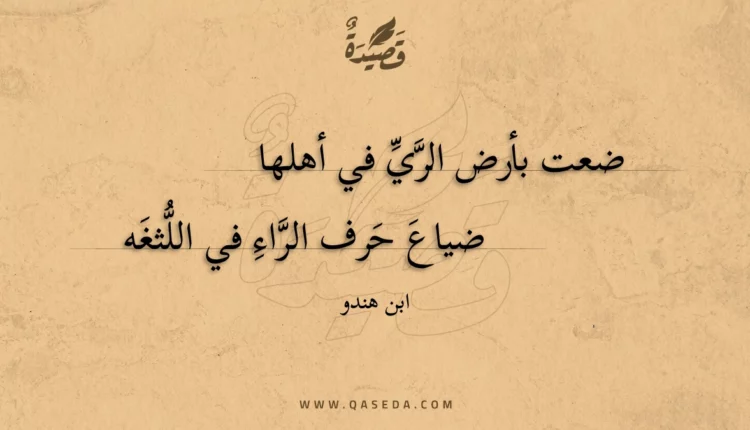 قَصِيْدَةٌ
ضعت بأرض الرَّيِّ في أهلها
ضياعَ حَرف الرَّاءِ في اللُّثغَه
ابن هندو
WWW.QASEDA.COM